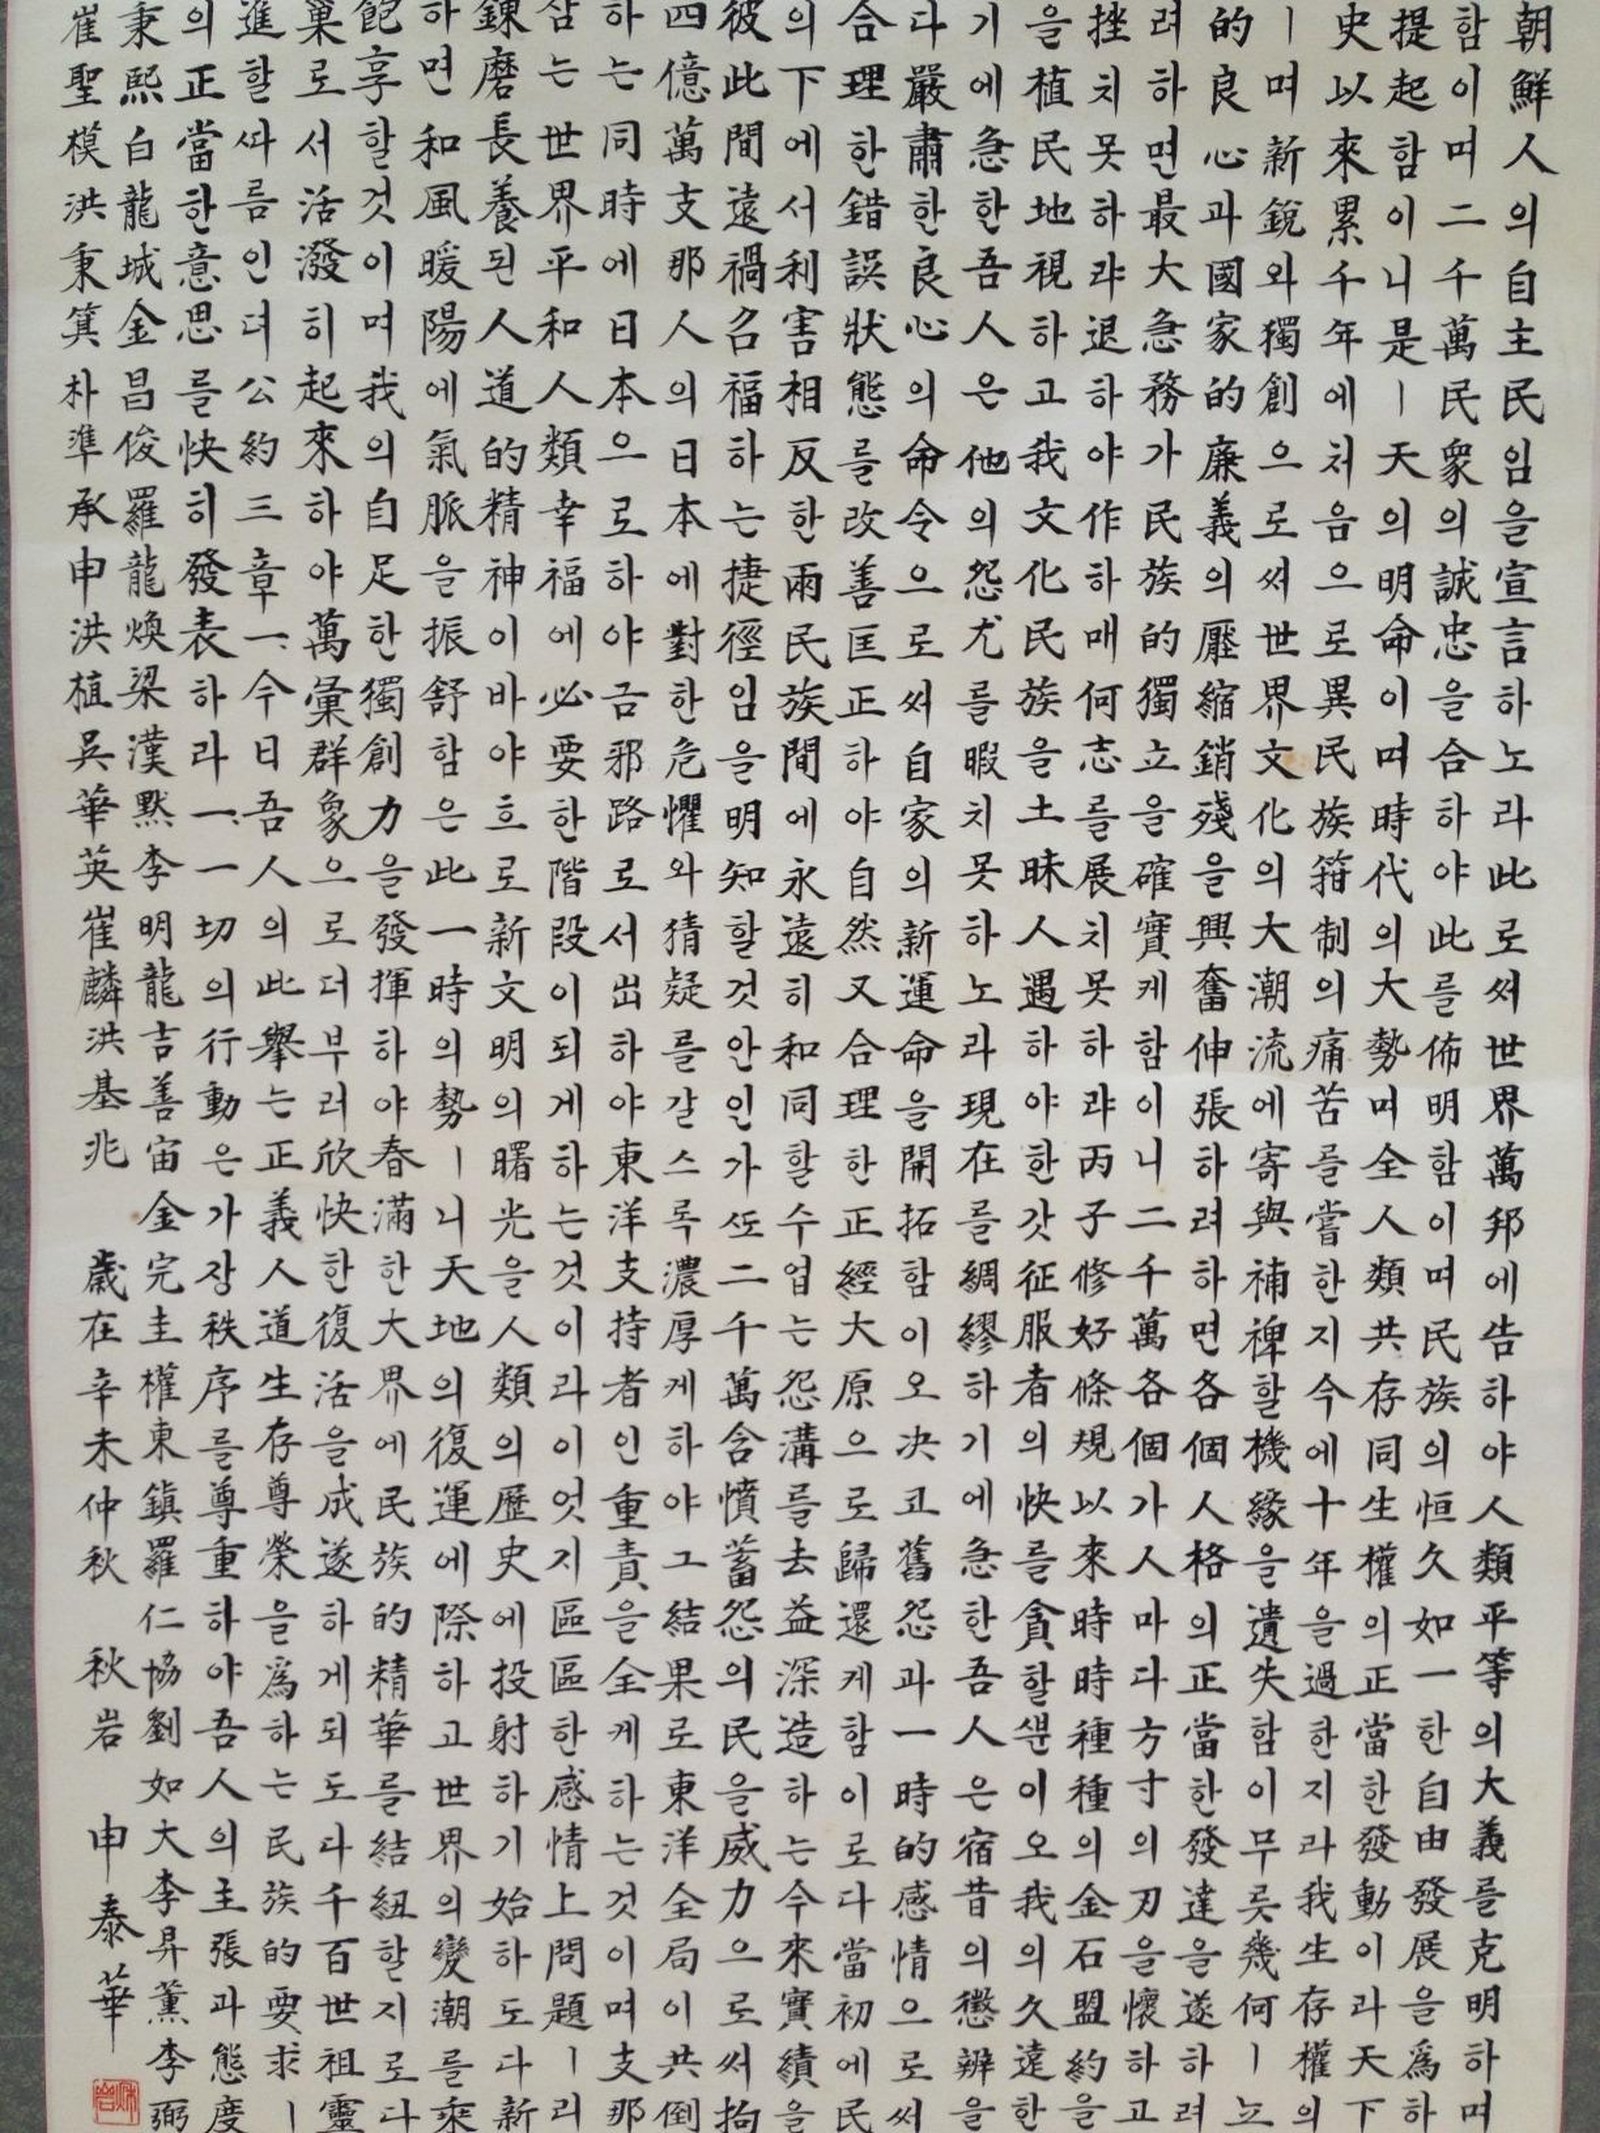 朝鮮人의自主民임을宣言하노라此로써世界萬邦에告하야人類平等의大義를克明하며
함이며二千萬民衆의誠忠을合하야此를佈明함이며民族의恒久如一한自由發展을爲하
提起함이니是ㅣ天의明命이며時代의大勢며全人類共存同生權의正當한發動이라天下
史以來累千年에처음으로異民族箝制의痛苦를嘗한지今에十年을過한지라我生存權의
ㅣ며新銳와獨創으로써世界文化의大潮流에寄與補裨할機緣을遺失함이무릇幾何ㅣ노
的良心과國家的廉義의壓縮銷殘을興奮伸張하려하면各個人格의正當한發達을遂하려
려하면最大急務가民族的獨立을確實케함이니二千萬各個가人마다方寸의刃을懷하고
挫치못하랴退하야作하매何志를展치못하랴丙子修好條規以來時時種種의金石盟約을
을植民地視하고我文化民族을土昧人遇하야한갓征服者의快를貪할쌘이오我의久遠한
기에急한吾人은他의怨尤를暇치못하노라現在를綢繆하기에急한吾人은宿昔의懲辨을
다嚴肅한良心의命令으로써自家의新運命을開拓함이오决코舊怨과一時的感情으로써
合理한錯誤狀態를改善匡正하야自然又合理한正經大原으로歸還케함이로다當初에民
의下에서利害相反한兩民族間에永遠히和同할수업는怨溝를去益深造하는今來實績을
彼此間遠禍召福하는捷徑임을明知할것안인가ᄯᅩ二千萬含憤蓄怨의民을威力으로써拘
四億萬支那人의日本에對한危懼와猜疑를갈스록濃厚케하야그結果로東洋全局이共倒
하는同時에日本으로하야금邪路로서出하야東洋支持者인重責을全케하는것이며支那
삼는世界平和人類幸福에必要한階段이되게하는것이라이엇지區區한感情上問題ㅣ리
鍊磨長養된人道的精神이바야흐로新文明의曙光을人類의歷史에投射하기始하도다新
하면和風暖陽에氣脈을振舒함은此一時의勢ㅣ니天地의復運에際하고世界의變潮를乘
飽享할것이며我의自足한獨創力을發揮하야春滿한大界에民族的精華를結紐할지로다
巢로서活潑히起來하야萬彙群象으로더부러欣快한復活을成遂하게되도다千百世祖靈
進할ᄯᅡ름인뎌公約三章一、今日吾人의此擧는正義人道生存尊榮을爲하는民族的要求ㅣ
의正當한意思를快히發表하라一、一切의行動은가장秩序를尊重하야吾人의主張과態度
秉熙白龍城金昌俊羅龍煥梁漢默李明龍吉善宙金完圭權東鎭羅仁協劉如大李昇薰李弼
崔聖模洪秉箕朴準承申洪植吳華英崔麟洪基兆 歲在辛未仲秋 秋岩 申泰華